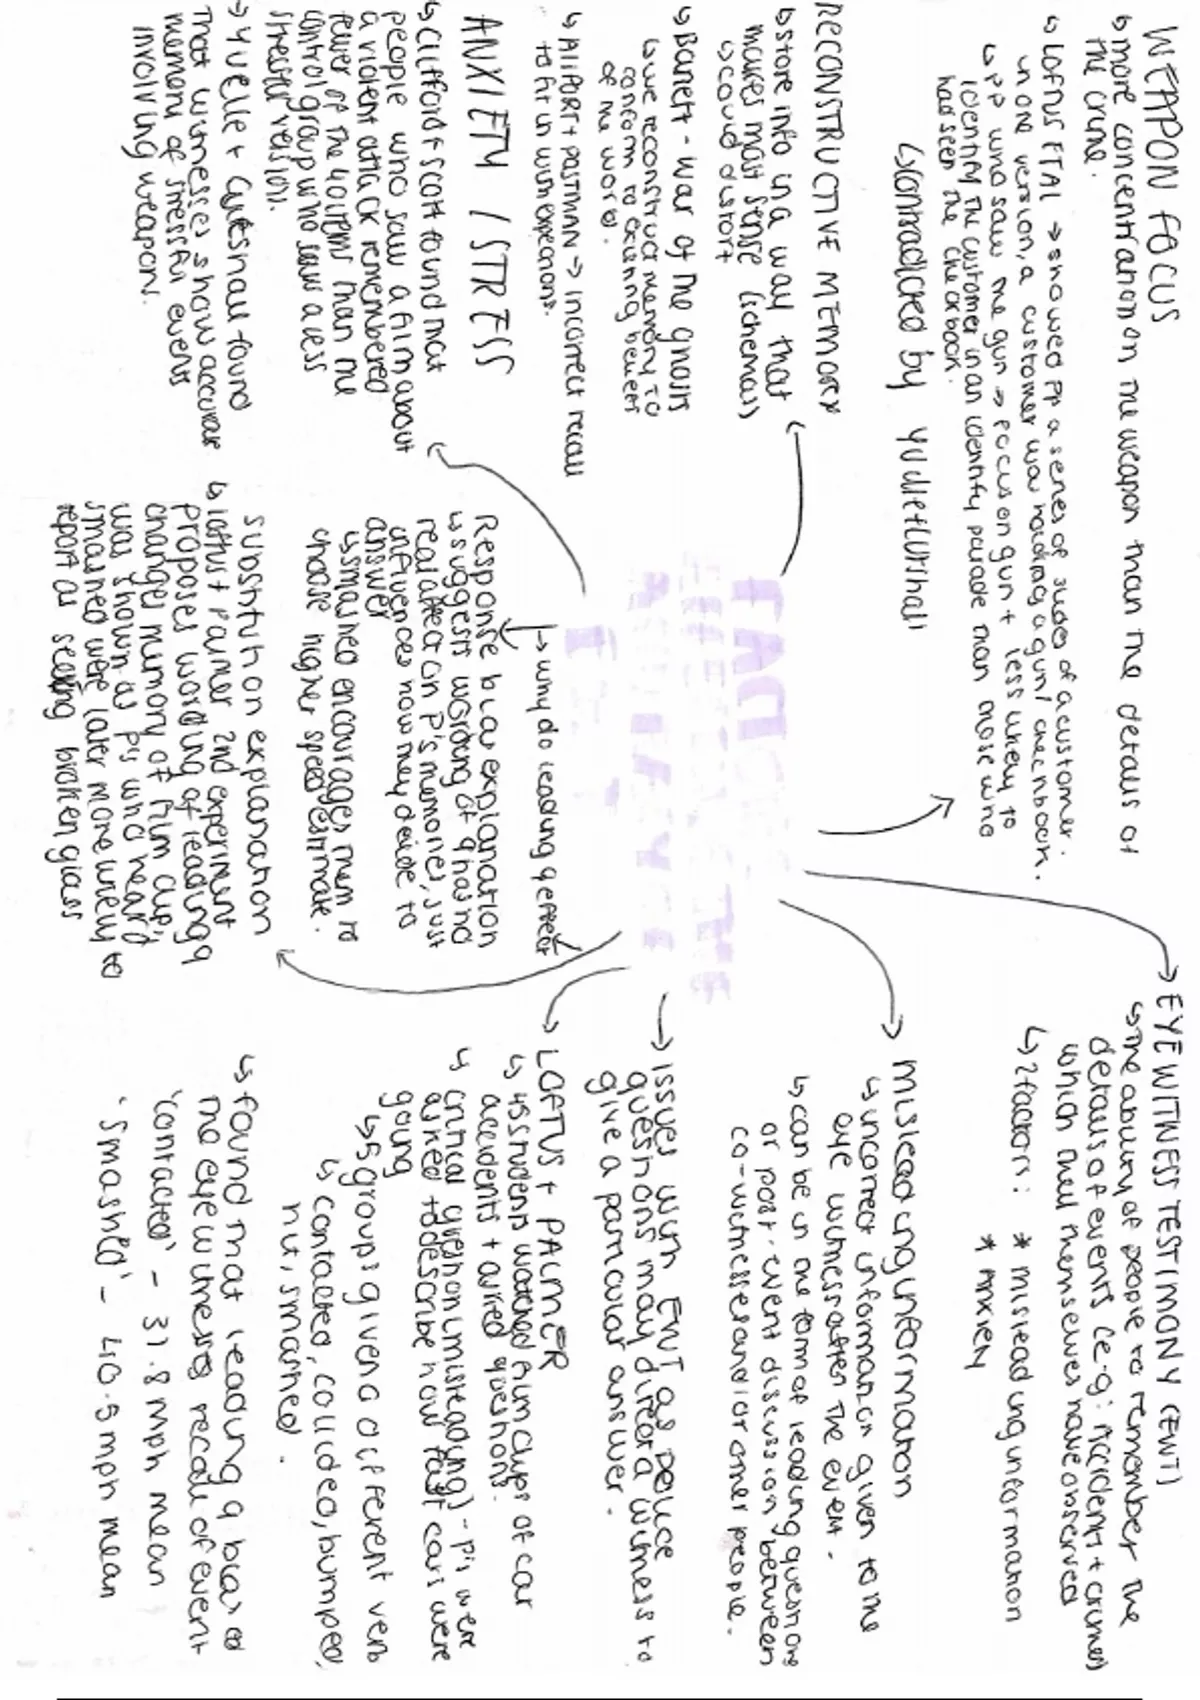 WEAPON FOCUS
↳ more concentration on the weapon than the details of
the crime.
↳ LOFTUS ET AL → showed pp a series of slides of a customer.
in one version, a customer was holding a gun / checkbook.
↳ pp who saw the gun → focus on gun + less likely to
identify the customer in an identity parade than those who
had seen the checkbook.
↳ contradicted by
RECONSTRUCTIVE MEMORY
↳ store info in a way that
makes most sense (schemas)
↳ could distort
↳ Barlett - war of the ghosts
↳ we reconstruct memory to
conform to existing beliefs
of the world.
↳ Allport + postman → incorrect recall
to fit in with
ANXIETY / STRESS
↳ Clifford + scott found that
people who saw a film about
a violent attack remembered
fewer of the 40 items than the
control group who saw a less
stressful version.
→ Yuelle + Cutsnall found
that witnesses show accurate
memory of stressful events
involving weapons.
↳ why do leading q effect
Response bias explanation
↳ suggests wording of q has no
real affect on P's memories, just
influences how they decide to
answer
↳ smashed encourages them to
choose higher speed estimate.
substitution explanation
↳ loftus + palmer 2nd experiment
proposes wording of leading q
changes memory of film clip,
was shown as p's who heard
smashed were later more likely to
report as seeing broken glass
→ EYE WITNESS TESTIMONY (EWT)
↳ the ability of people to remember the
details of events (e.g: Accidents + crimes)
which they themselves have observed
↳ 2 factors: * misleading information
* Anxiety
→ misleading information
↳ incorrect information given to the
eye witness after the event.
↳ can be in the form of leading questions
or post-event discussion between
co-witnesses and/or other people.
→ ISSUES with EWT as police
questions may direct a witness to
give a particular answer.
→ LOFTUS + PALMER
↳ 45 students watched film clips of car
accidents + asked questions.
↳ critical question (misleading) - p's were
asked to describe how fast cars were
going
↳ 5 groups given a different verb
↳ contacted, collided, bumped,
hit, smashed.
↳ found that leading q biased
the eyewitness recall of event
'contacted' - 31.8 mph mean
'smashed' - 40.5 mph mean